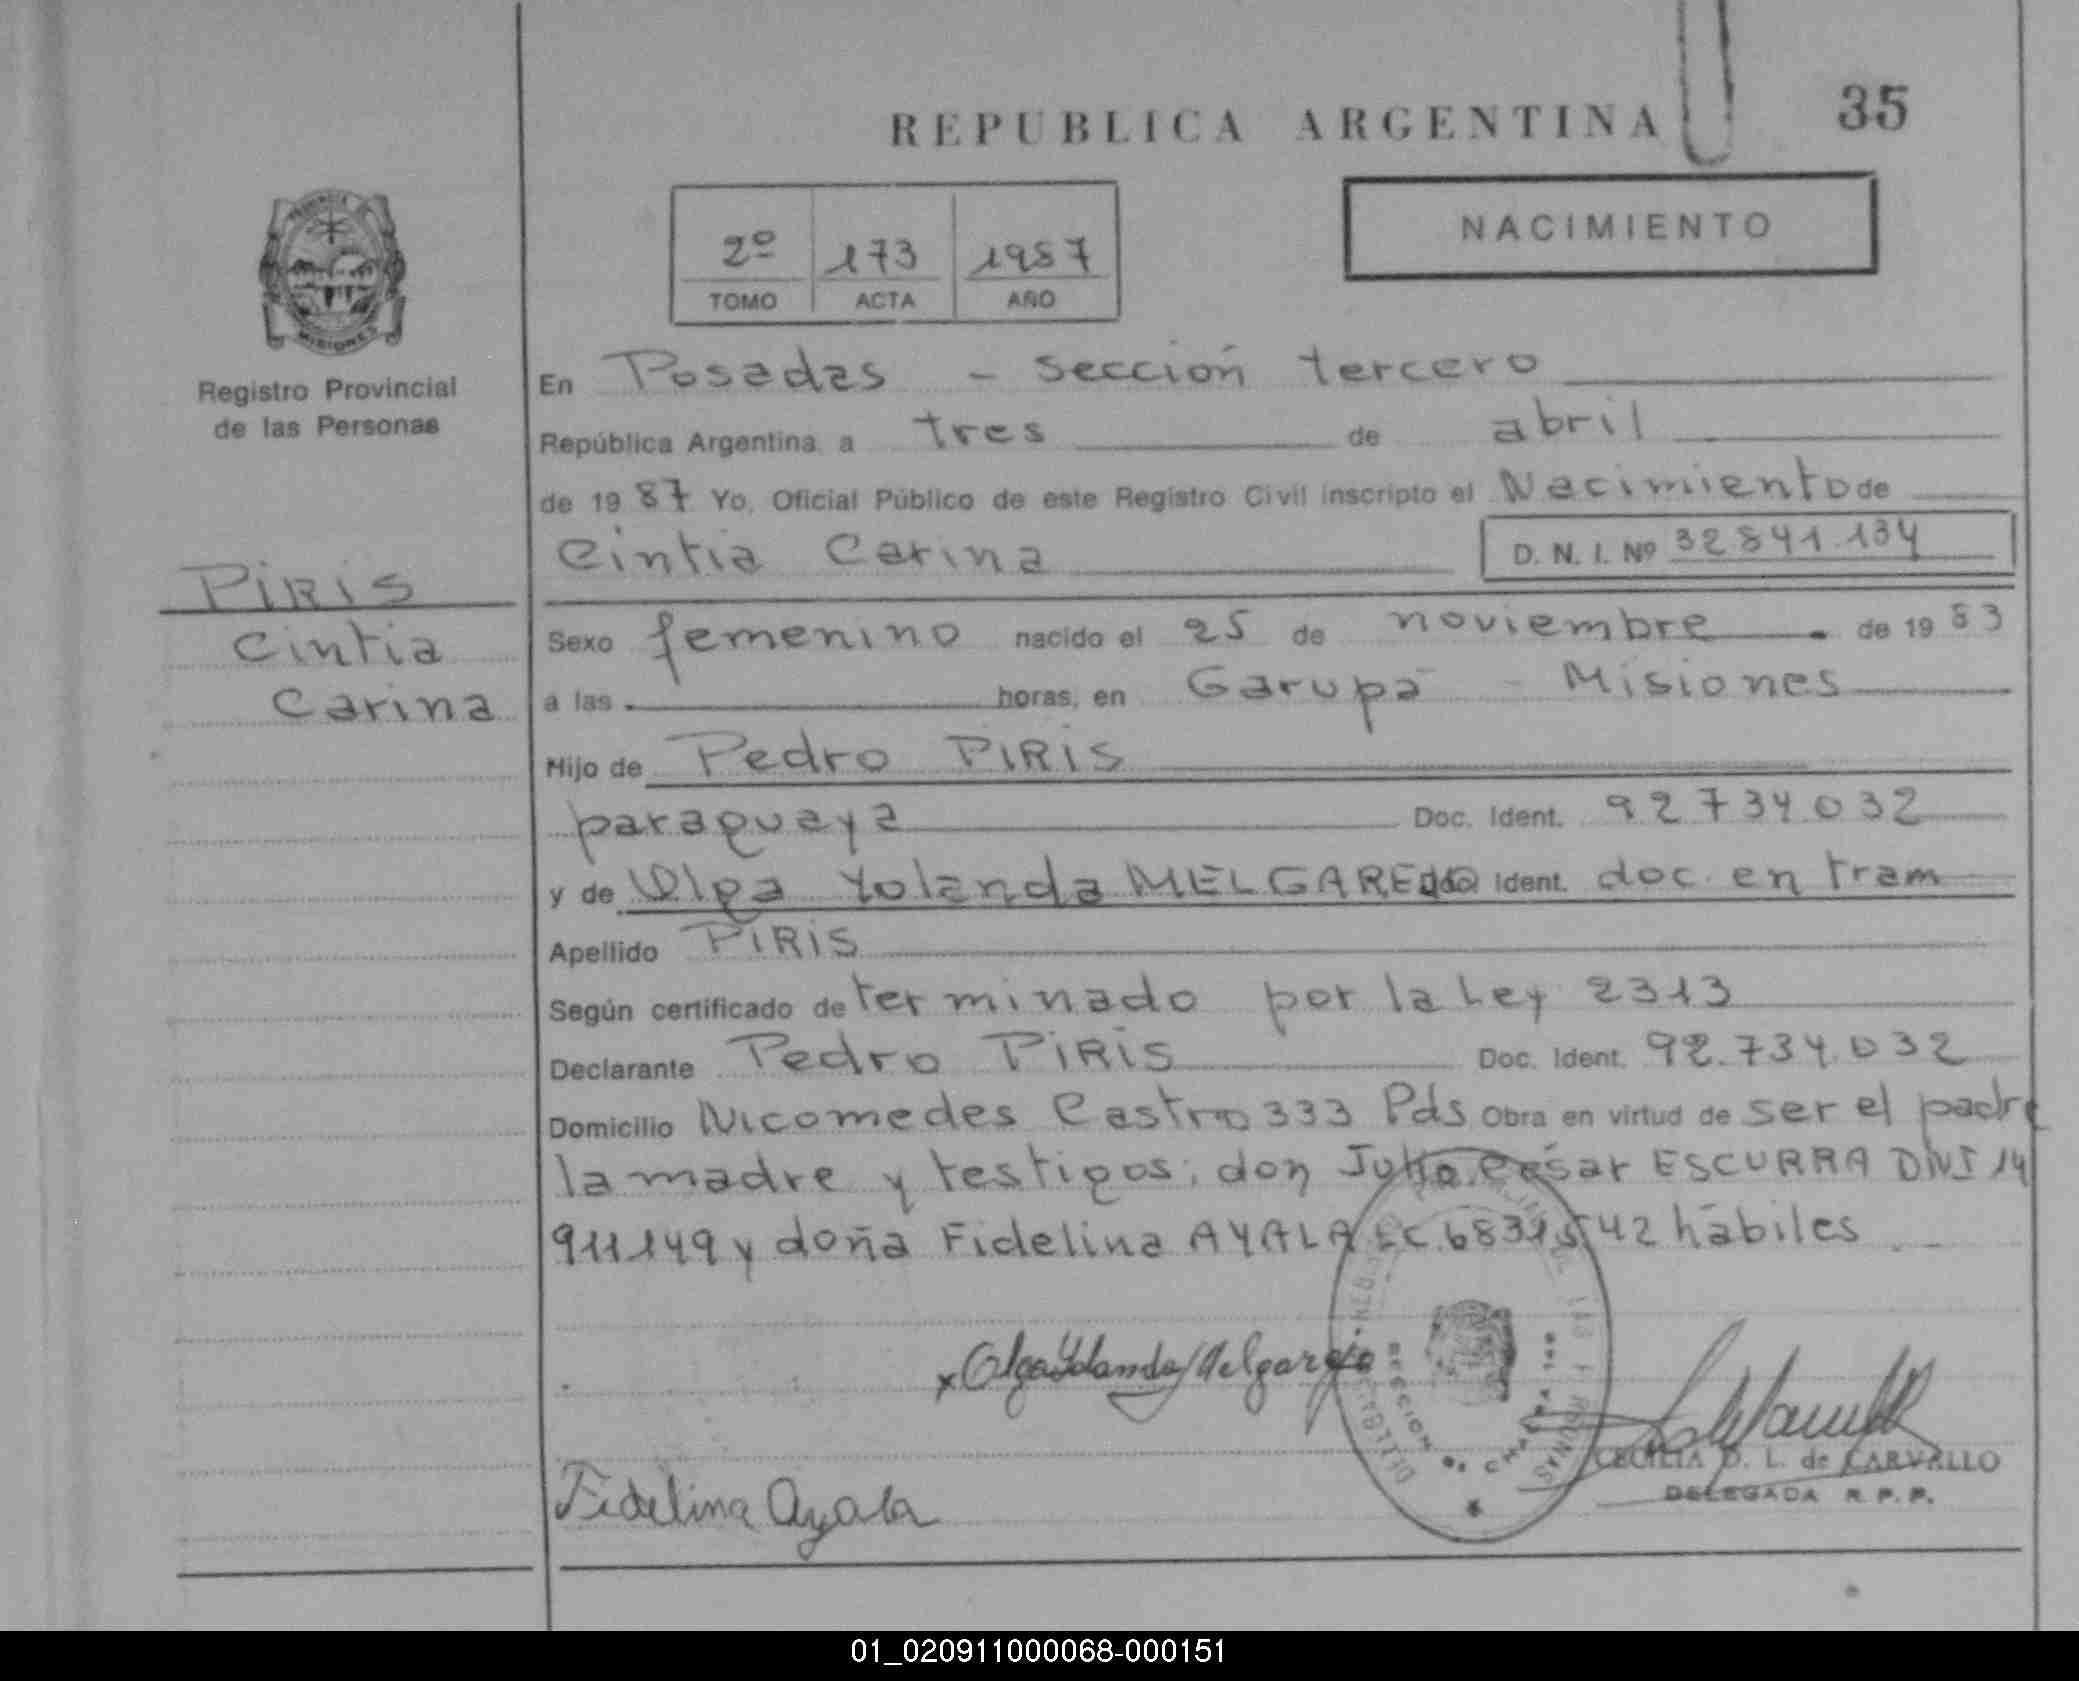 REPUBLICA ARGENTINA
35
NACIMIENTO
2º 173 1987
TOMO ACTA AÑO
MISIONES
Registro Provincial
de las Personas
PIRIS
Cintia
Carina
En Posadas - sección tercero
República Argentina, a tres de abril
de 1987 Yo, Oficial Público de este Registro Civil inscripto el Nacimiento de
Cintia Carina D. N. I. Nº 32841.134
Sexo femenino nacido el 25 de noviembre de 1983
a las horas, en Garupá - Misiones
Hijo de Pedro PIRIS
paraguaya Doc. Ident. 92734032
y de Olga Yolanda MELGAREJO Ident. doc. en tram
Apellido PIRIS
Según certificado determinado por la Ley 2313
Declarante Pedro PIRIS Doc. Ident. 92.734.032
Domicilio Nicomedes Castro 333 Pds Obra en virtud de ser el padre
la madre y testigos; don Julio César ESCURRA DNI 14
911149 y doña Fidelina AYALA LC 6831542 hábiles
x Olga Yolanda Melgarejo
Fidelina Ayala
CECILIA D. L. de CARVALLO
DELEGADA R. P. P.
01_020911000068-000151